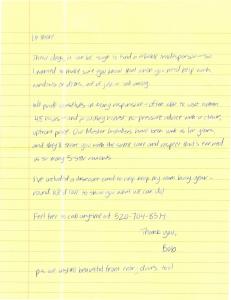 Hi there!
These days, it can be tough to find a reliable – so
I wanted to make sure you know that when you need help with
windows or doors, we're just a call away.
We pride ourselves on being responsive – often able to visit within
48 hours – and providing honest no-pressure advice with a clear,
upfront price. Our Master Installers have been with us for years,
and they'll treat you with the same care and respect that's earned
us so many 5-star reviews.
I've included a discount card to help keep my team busy year-
round. We'd love to show you what we can do!
Feel free to call anytime at 520-704-8314
Thank you,
Bob
p.s. we install beautiful front entry doors too!